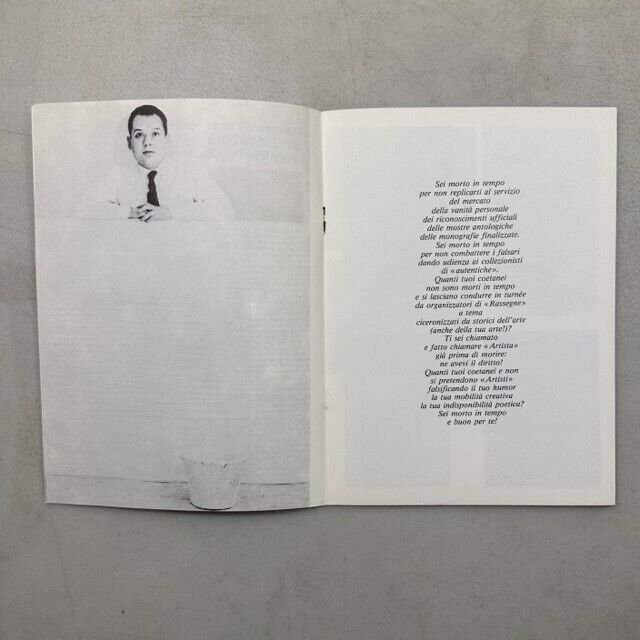 Sei morto in tempo
per non replicarti al servizio
del mercato
della vanità personale
dei riconoscimenti ufficiali
delle mostre antologiche
delle monografie finalizzate.
Sei morto in tempo
per non combattere i falsari
dando udienza ai collezionisti
di «autentiche».
Quanti tuoi coetanei
non sono morti in tempo
e si lasciano condurre in turnée
da organizzatori di «Rassegne»
a tema
ciceronizzati da storici dell'arte
(anche della tua arte!)?
Ti sei chiamato
e fatto chiamare «Artista»
già prima di morire:
ne avevi il diritto!
Quanti tuoi coetanei e non
si pretendono «Artisti»
falsificando il tuo humor
la tua mobilità creativa
la tua indisponibilità poetica?
Sei morto in tempo
e buon per te!